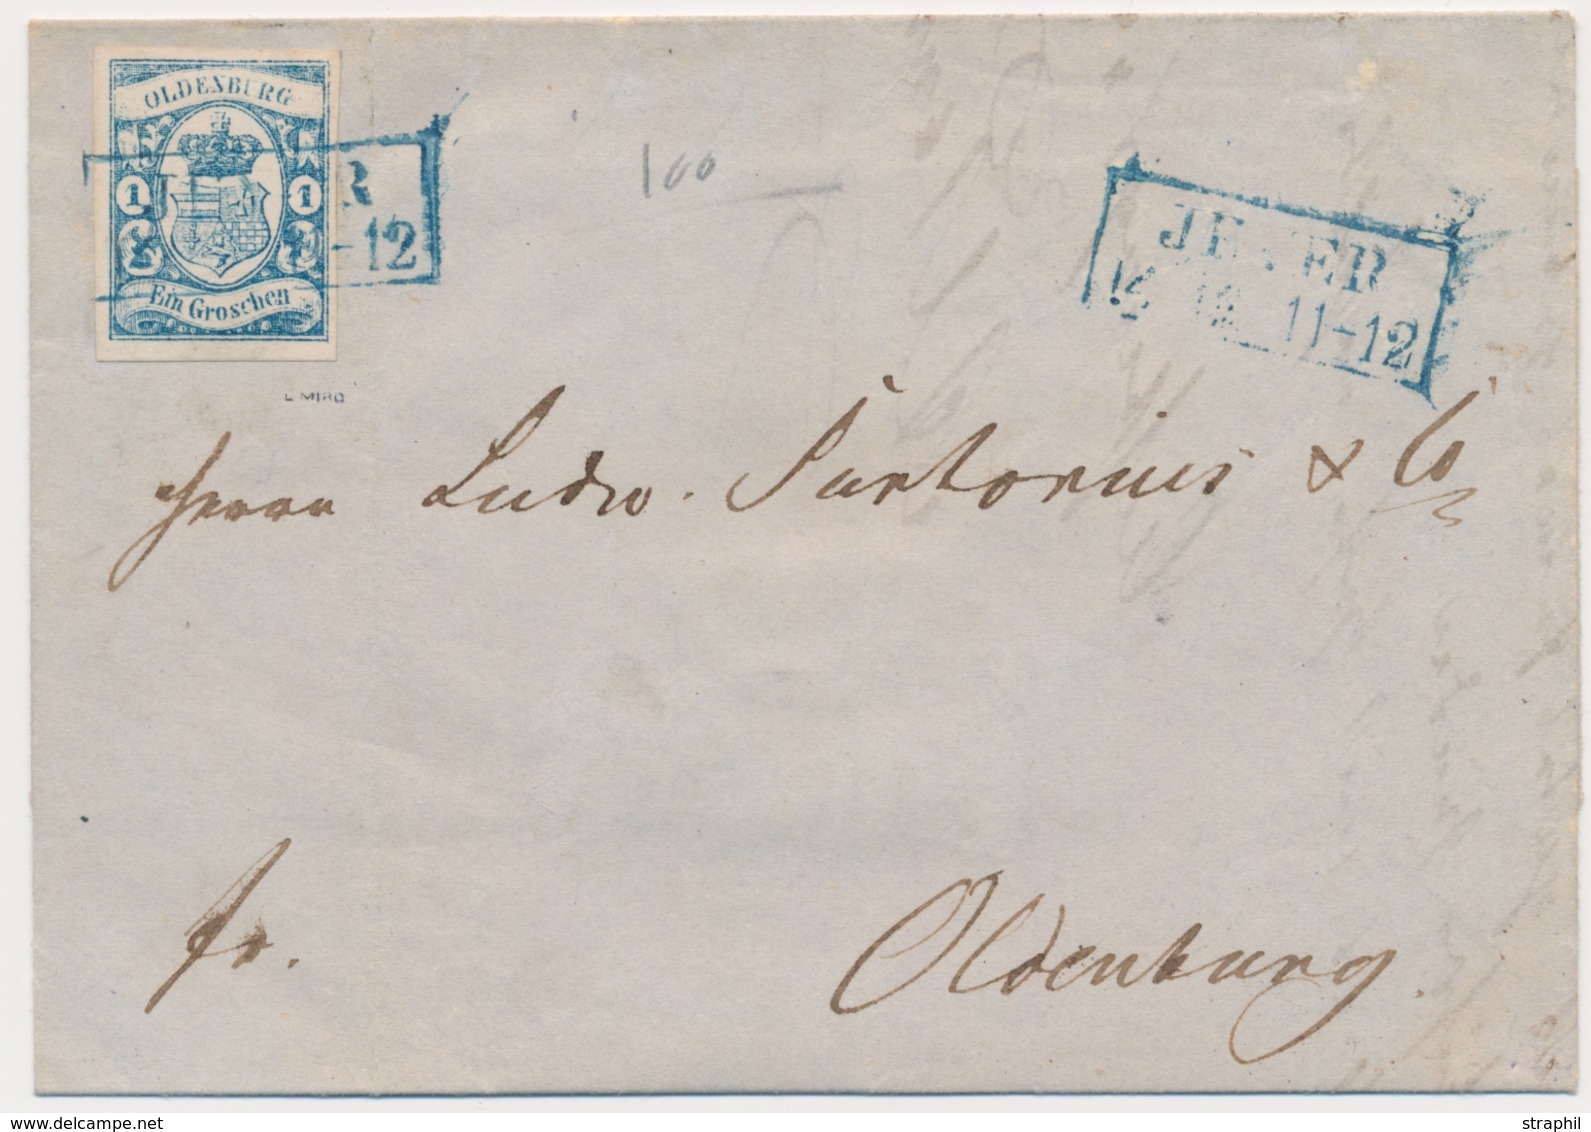 OLDENBURG
1 1
Ein Groschen
R
-12
100
JEVER
12 11-12
E MIRO
Herrn Ludw. Sartorius & Co
fr.
Oldenburg.
delcampe.net
straphil